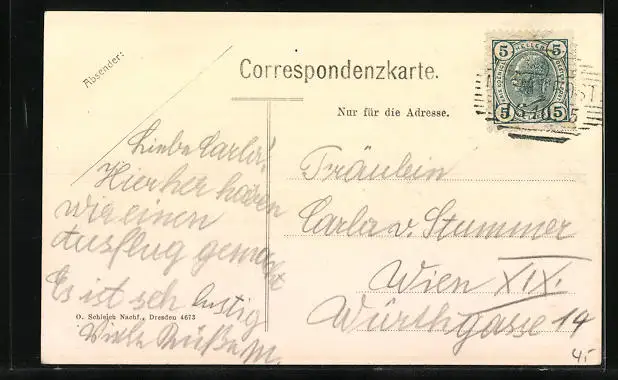 Absender:
Correspondenzkarte.
Nur für die Adresse.
5 HELLER 5
5 5
Liebe Carla!
Hierher haben
wir einen
Ausflug gemacht
Es ist seh lustig
Viele Grüße M.
Fräulein
Carla v. Stummer
Wien XIX.
Würthgasse 14
O. Schleich Nachf., Dresden 4673